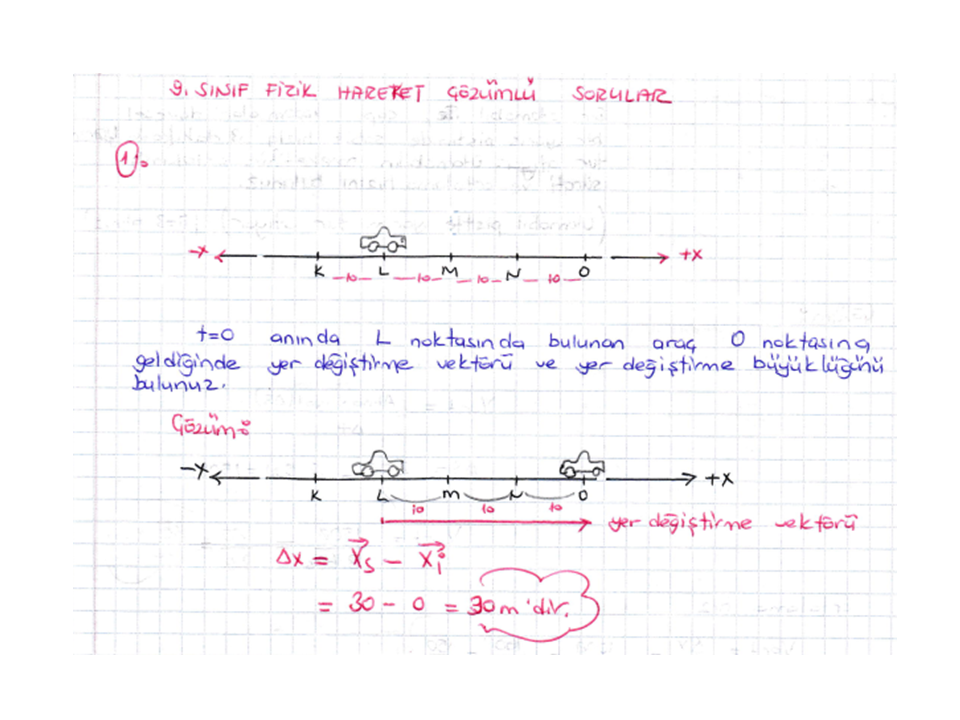 9. SINIF FİZİK HAREKET ÇÖZÜMLÜ SORULAR
1.
-x K L M N O +x
10 10 10 10
t=0 anında L noktasında bulunan araç O noktasına
geldiğinde yer değiştirme vektörü ve yer değiştirme büyüklüğünü
bulunuz.
Çözüm:
-x K L M N O +x
10 10 10
yer değiştirme vektörü
Δx = X⃗s - X⃗i
= 30 - 0 = 30m'dir.